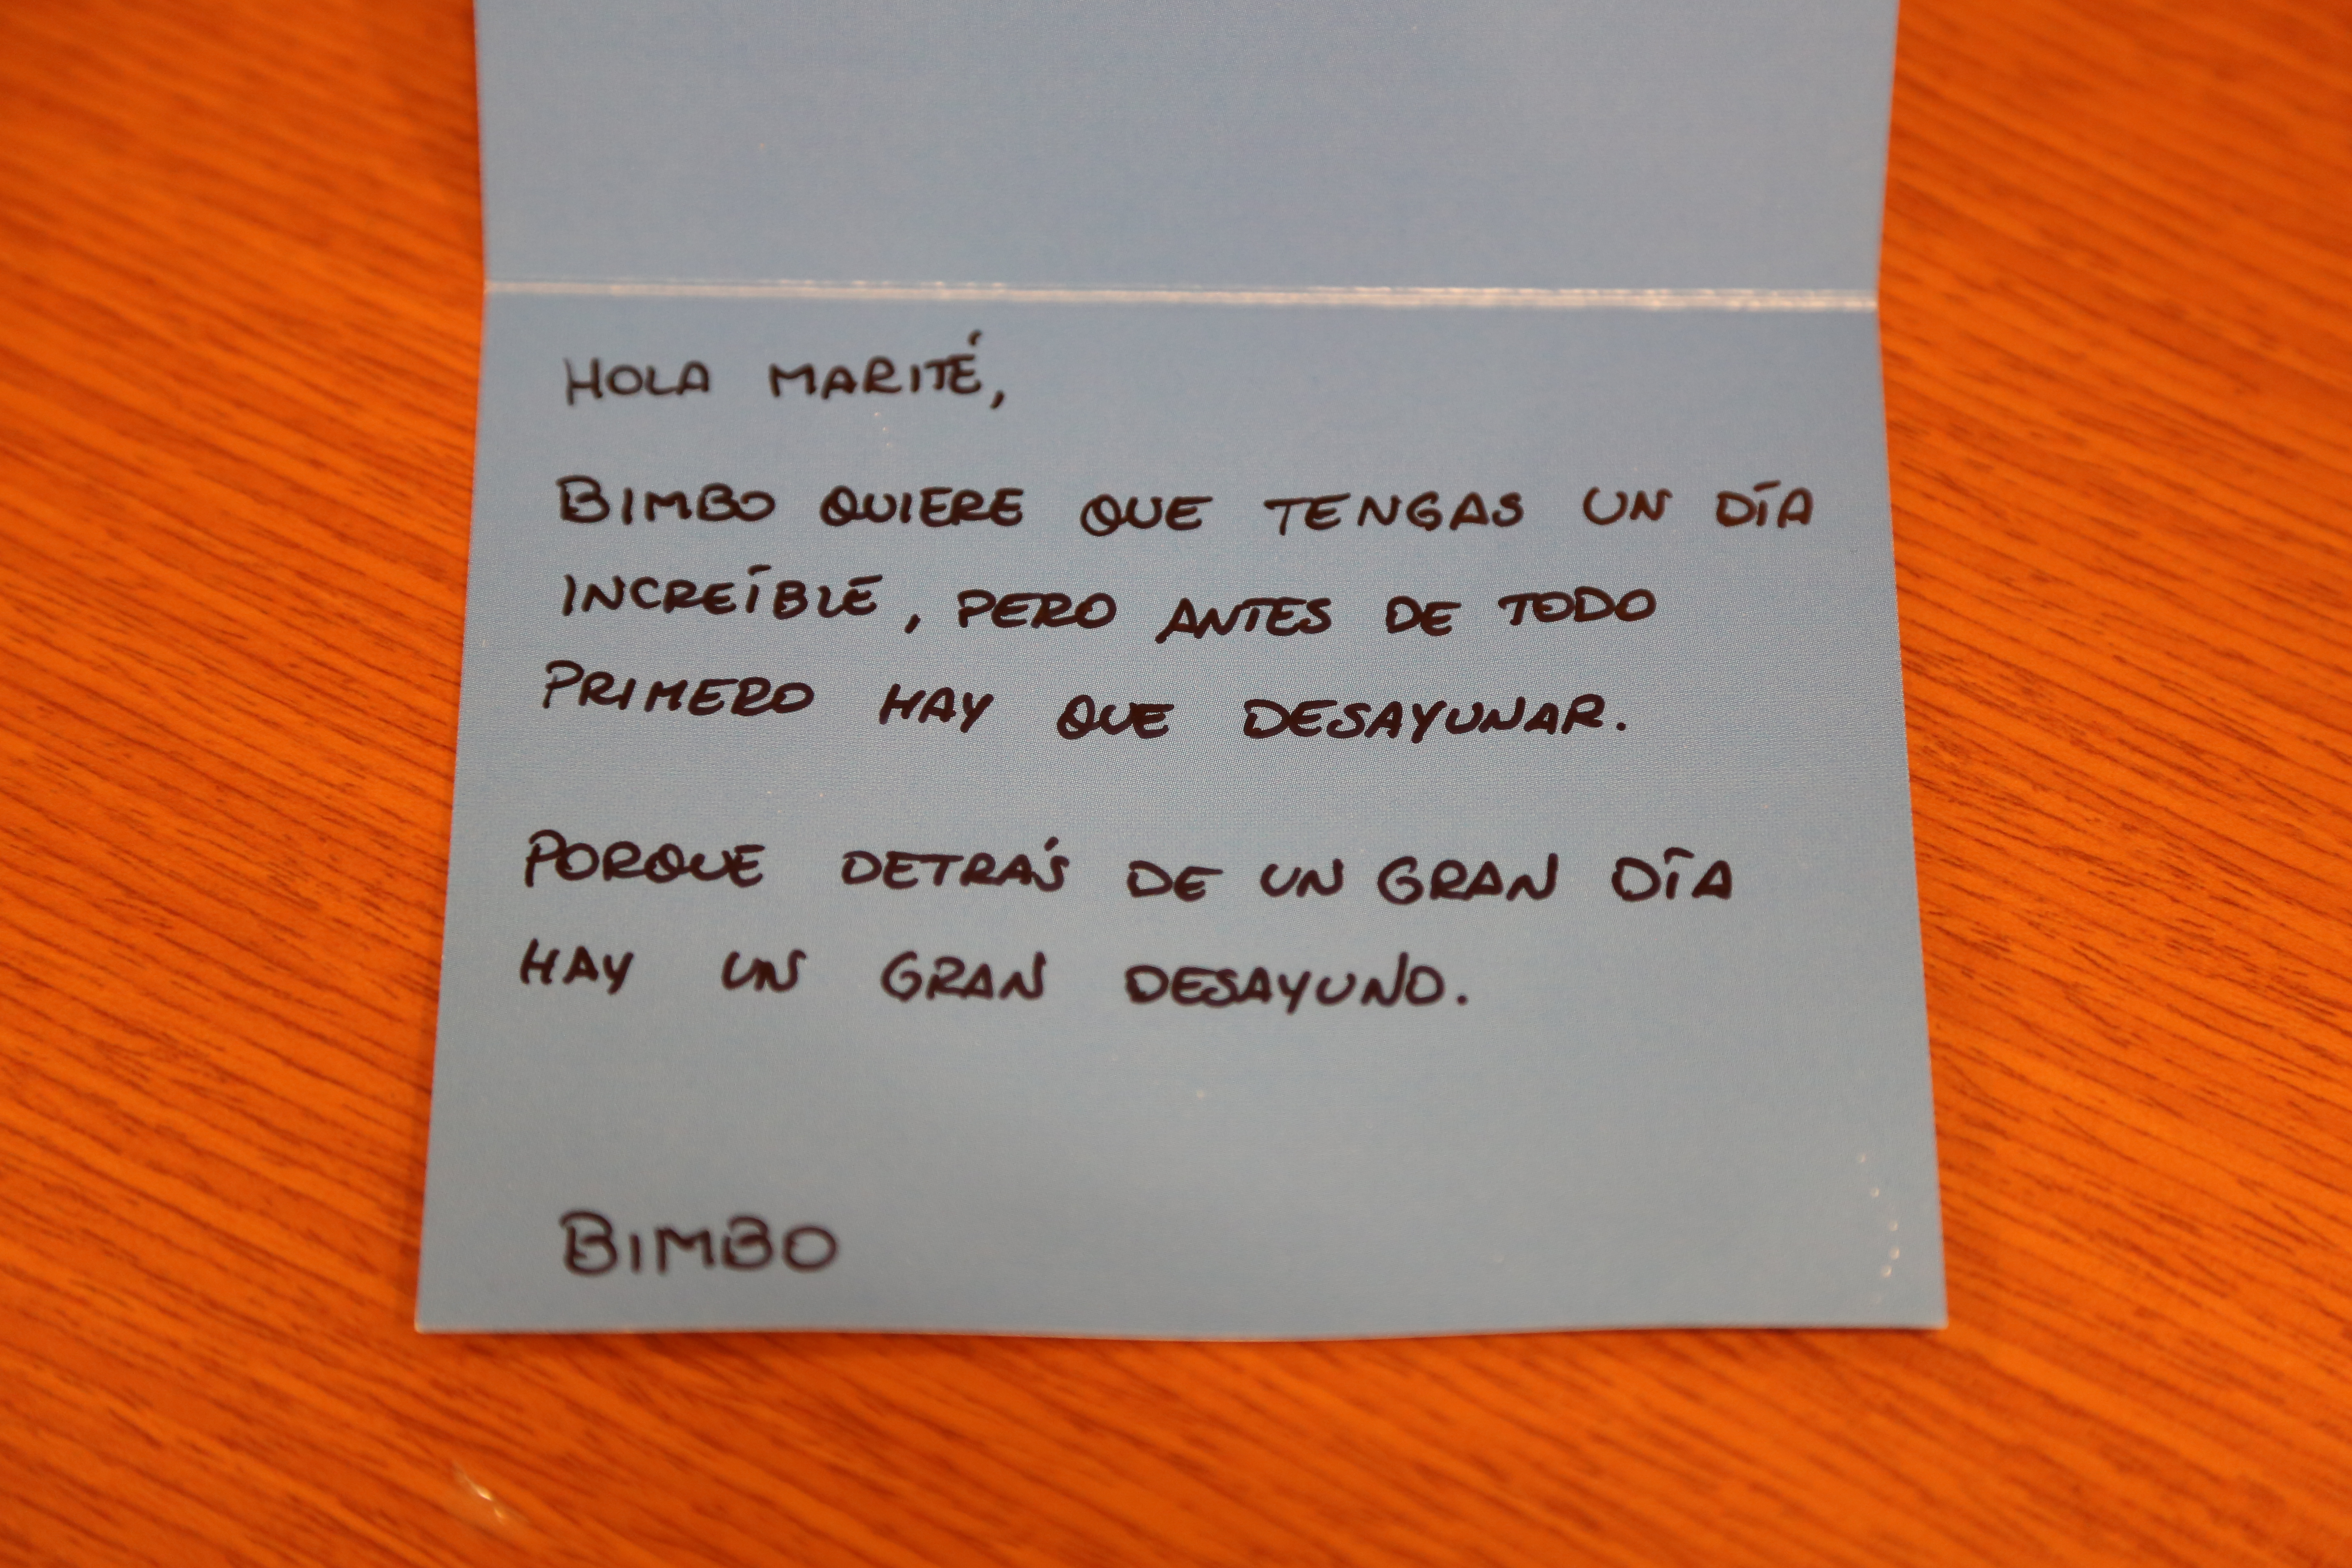 HOLA MARITÉ,
BIMBO QUIERE QUE TENGAS UN DÍA
INCREÍBLE, PERO ANTES DE TODO
PRIMERO HAY QUE DESAYUNAR.
PORQUE DETRÁS DE UN GRAN DÍA
HAY UN GRAN DESAYUNO.
BIMBO